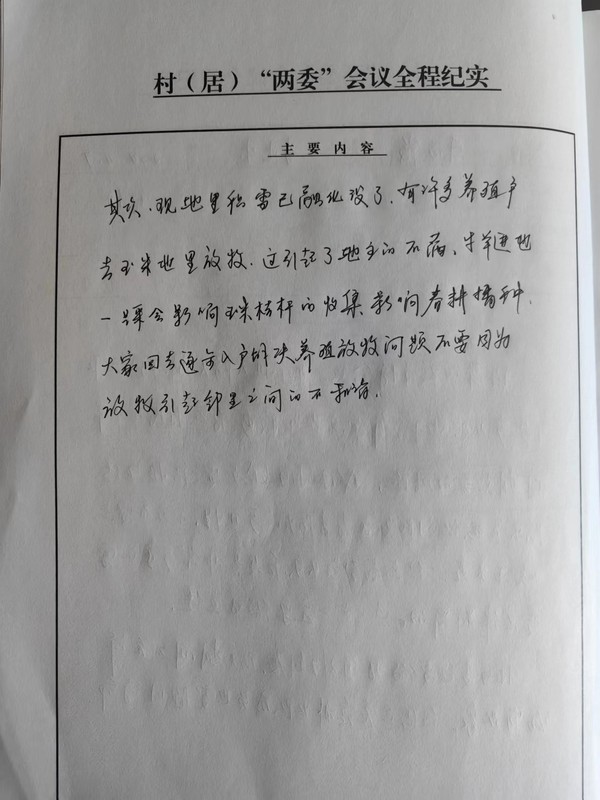 村（居）“两委”会议全程纪实
主 要 内 容
其次、现地里积雪已融化没了，有许多养殖户
去玉米地里放牧，这引起了地主的不满，牛羊进地
一踩会影响玉米秸秆的收集影响春耕播种，
大家回去通知入户解决养殖放牧问题不要因为
放牧引起邻里之间的不和谐。